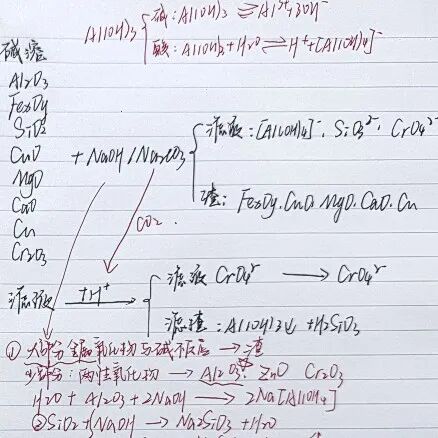 Al(OH)₃ { 碱: Al(OH)₃ ⇌ Al³⁺+3OH⁻
酸: Al(OH)₃+H₂O ⇌ H⁺+[Al(OH)₄]⁻
碱溶
Al₂O₃
FexOy
SiO₂
CuO
MgO
CaO
Cu
Cr₂O₃
+ NaOH/Na₂CO₃
滤液: [Al(OH)₄]⁻. SiO₃²⁻. CrO₄²⁻
渣: FexOy. CuO. MgO. CaO. Cu
CO₂.
滤液 +H⁺ →
滤液 CrO₄²⁻ → CrO₄²⁻
滤渣: Al(OH)₃↓ + H₂SiO₃
① 大部分金属氧化物与碱不反应 → 渣
少部分: 两性氧化物 → Al₂O₃ ZnO Cr₂O₃
H₂O + Al₂O₃ + 2NaOH → 2Na[Al(OH)₄]
② SiO₂ + NaOH → Na₂SiO₃ + H₂O